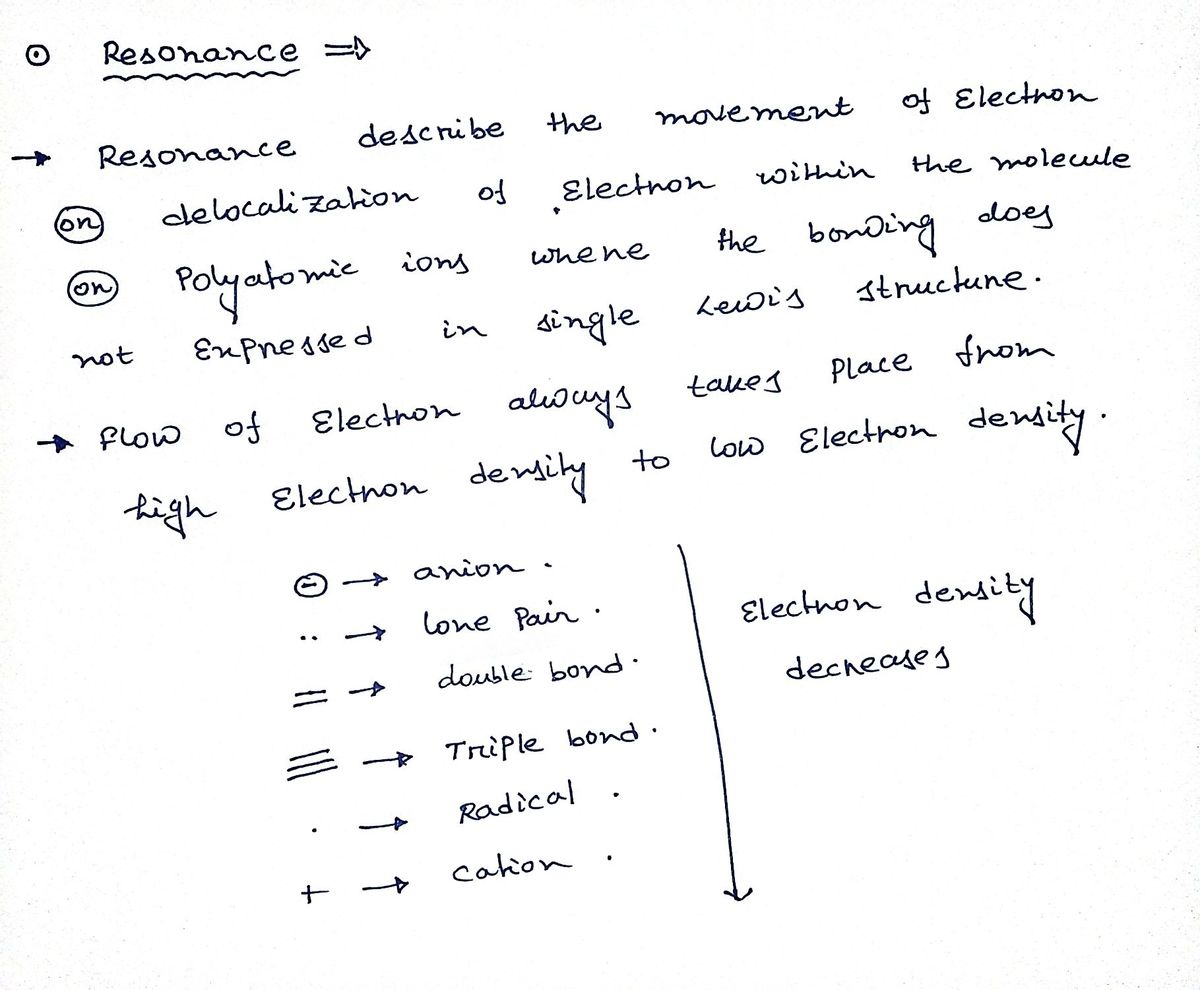 ⊙ Resonance ⇒
→ Resonance describe the movement of Electron
(or) delocalization of Electron within the molecule
(or) Polyatomic ions where the bonding does
not Expressed in single Lewis structure.
→ flow of Electron always takes Place from
high Electron density to low Electron density.
⊖ → anion.
.. → lone Pair.
= → double bond.
≡ → Triple bond.
. → Radical.
+ → cation.
Electron density
decreases